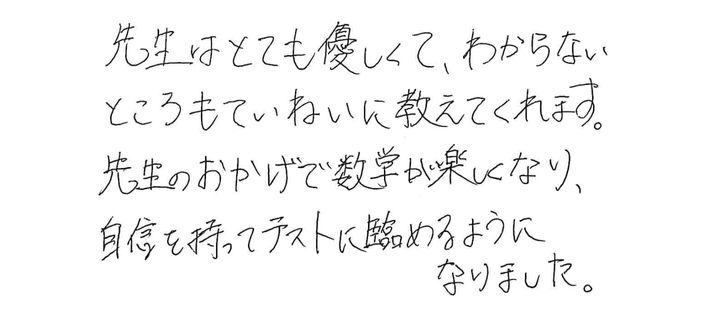 先生はとても優しくて、わからない
ところもていねいに教えてくれます。
先生のおかげで数学が楽しくなり、
自信を持ってテストに臨めるように
なりました。